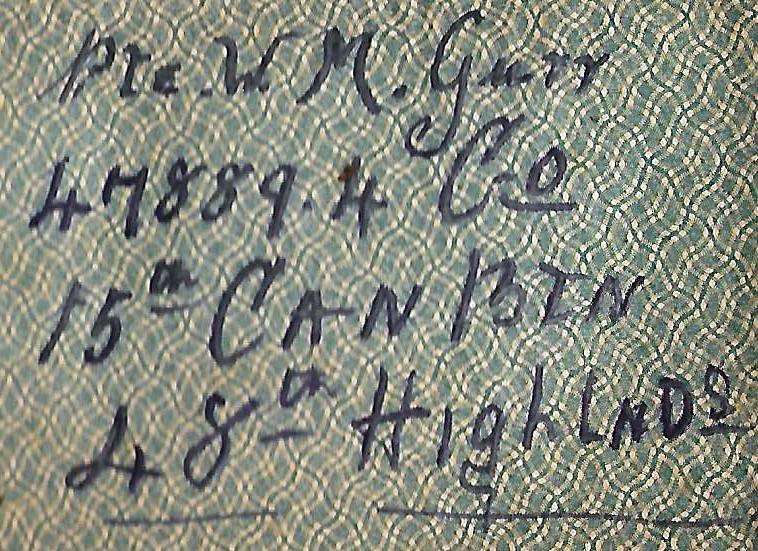 Pte. W M. Gurr
47889. 4 Co
15th CAN BTN
48th HighLNDS